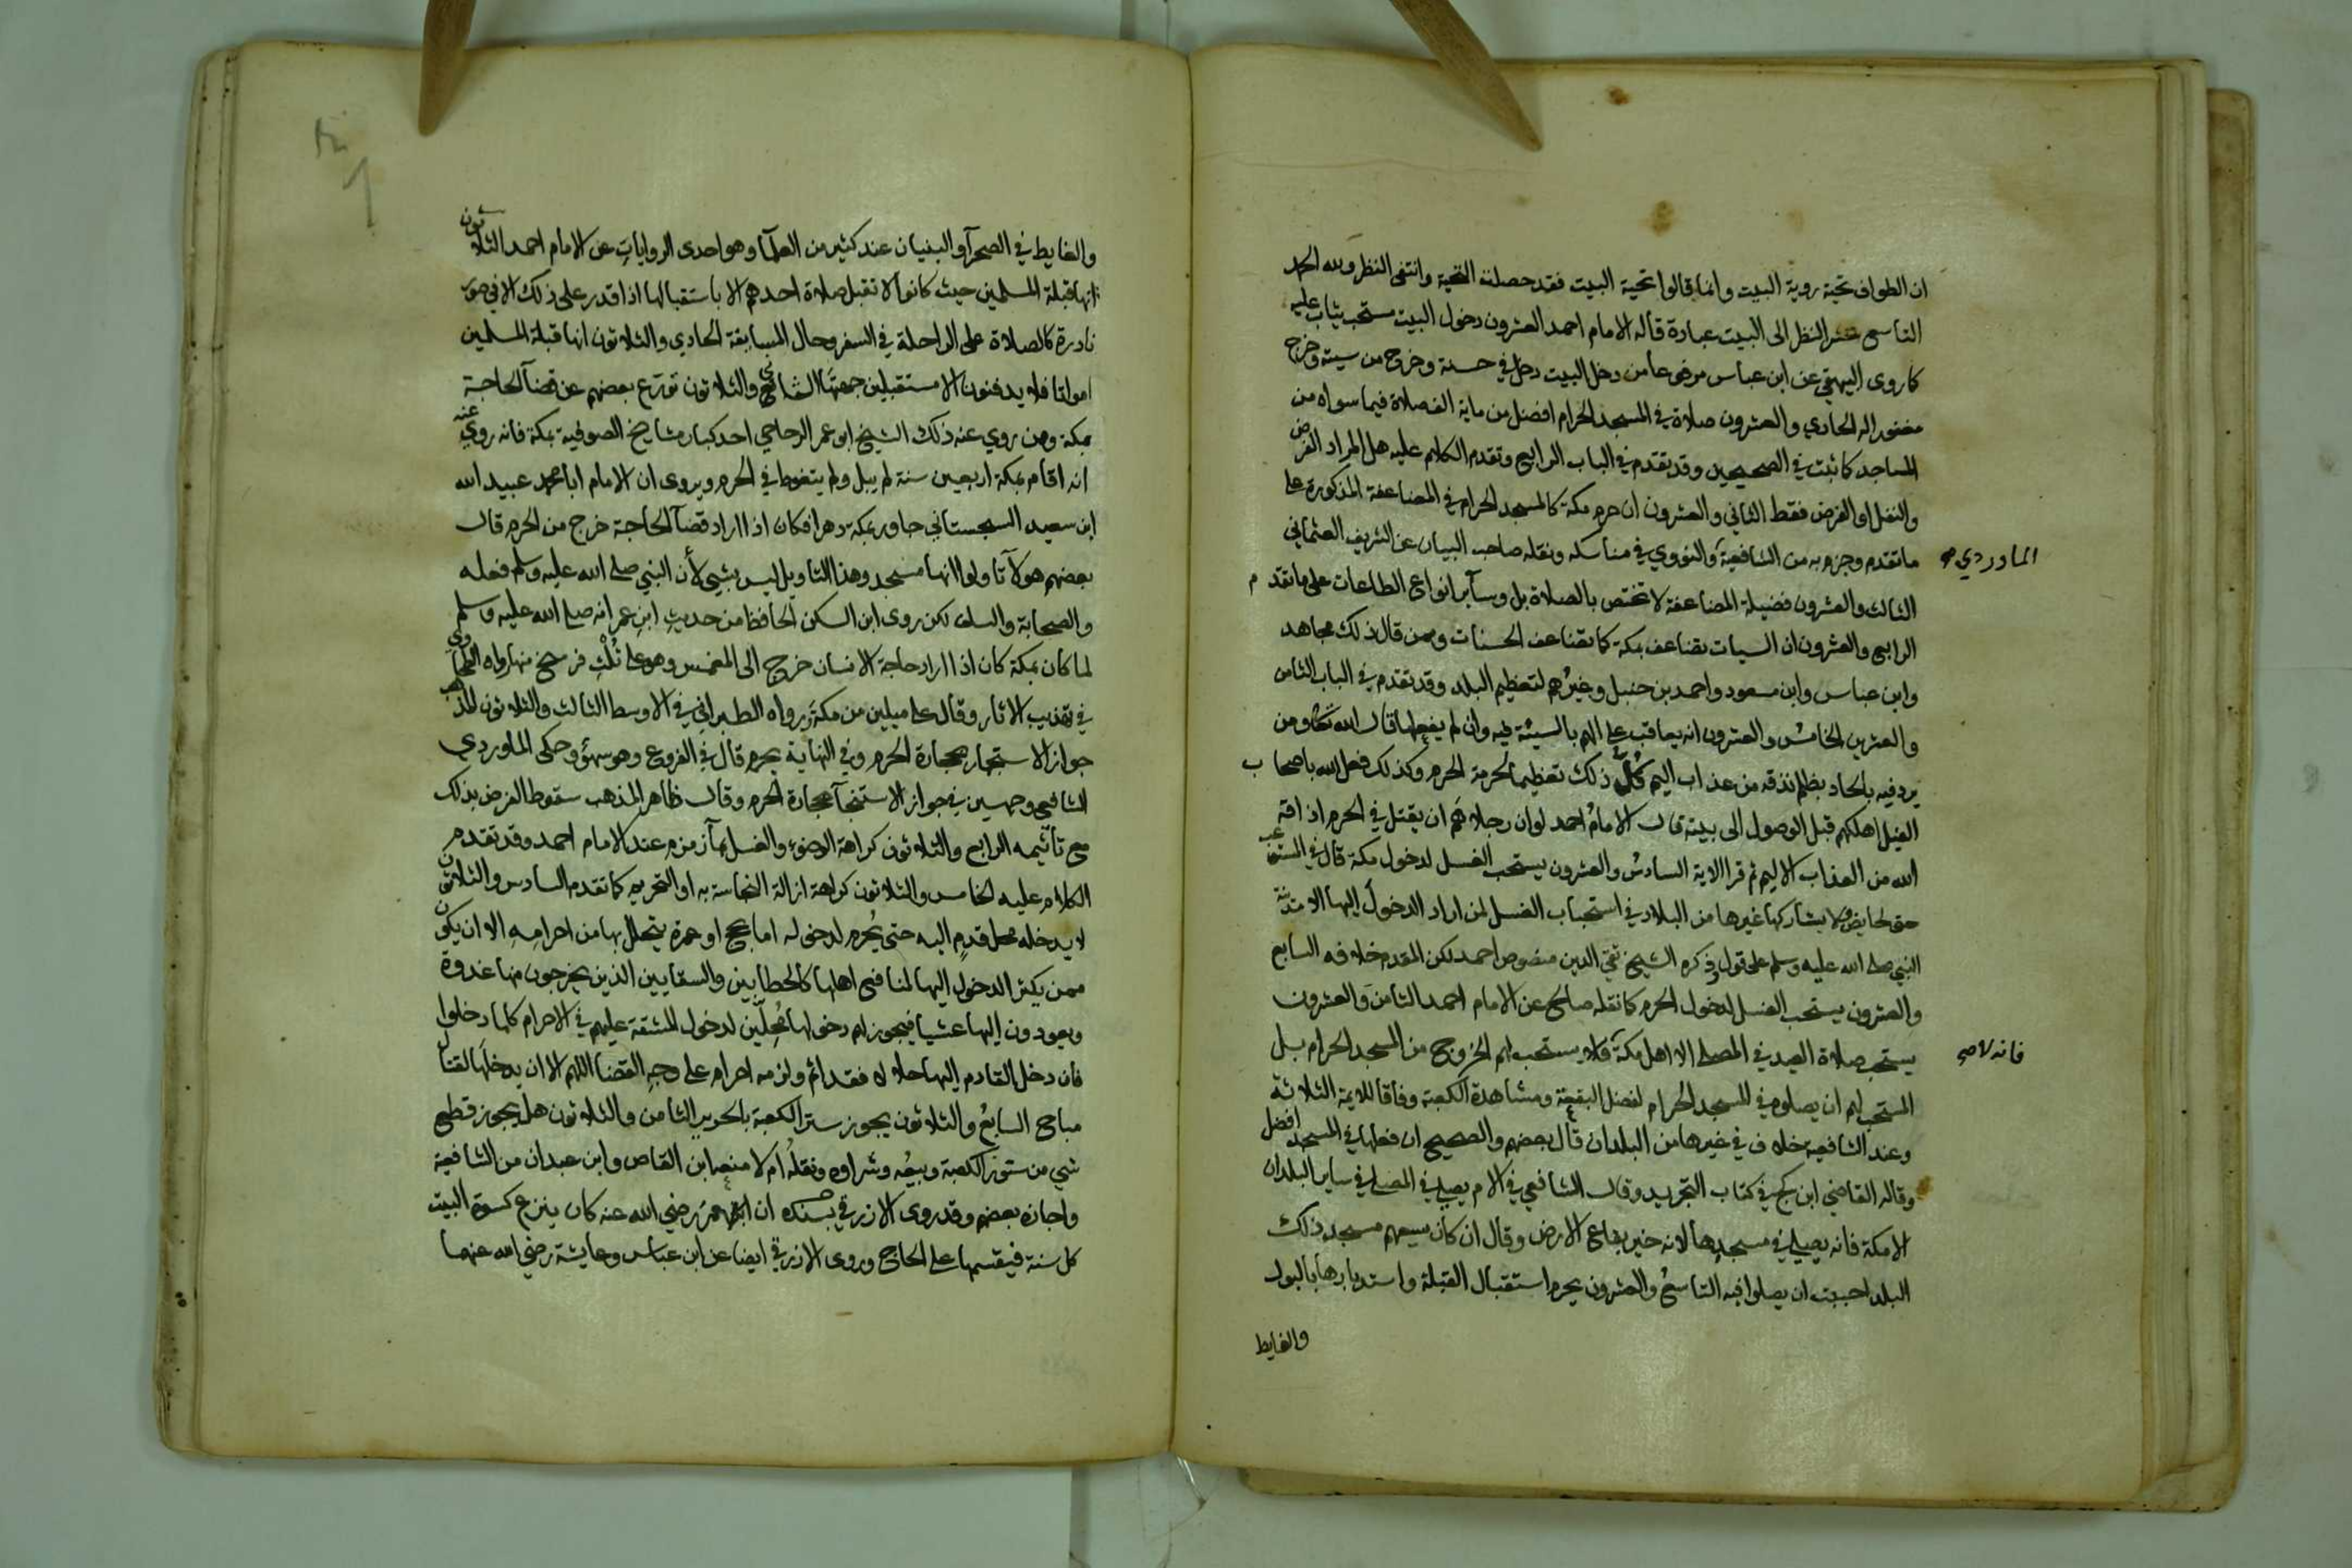 ان الطواف تحية روية البيت وانما قالوا تحية البيت فقد حصلت التحية وانتفى النظر ولله الحمد
التاسع عشر النظر الى البيت عبادة قاله الامام احمد العشرون دخول البيت مستحب يثاب عليه
كما روى البيهقي عن ابن عباس مرفوعا من دخل البيت دخل في حسنة وخرج من سيئة وخرج
مغفورا له الحادي والعشرون صلاة في المسجد الحرام افضل من ماية الف صلاة فيما سواه من
المساجد كما ثبت في الصحيحين وقد تقدم في الباب الرابع وتقدم الكلام عليه هل المراد الفرض
والنفل او الفرض فقط الثاني والعشرون ان حرم مكة كالمسجد الحرام في المضاعفة المذكورة على
ما تقدم وجزم به من الشافعية والنووي في مناسكه ونقله صاحب البيان عن الشريف العثماني
الماوردي صح
الثالث والعشرون فضيلة المضاعفة لا تختص بالصلاة بل وسآير انواع الطاعات على ما تقدم
الرابع والعشرون ان السيات تضاعف بمكة كما تضاعف الحسنات وممن قال ذلك مجاهد
وابن عباس وابن مسعود واحمد بن حنبل وغيرُهم لتعظيم البلد وقد تقدم في الباب الثامن
والعشرين الخامسُ والعشرون انه يعاقب على الهم بالسيئة فيه وان لم يفعلها قال الله تعالى ومن
يرد فيه بالحاد بظلم نذقه من عذاب اليم كُلُّ ذلك تعظيما لحرمة الحرم وكذلك فعل الله باصحاب
الفيل اهلكهم قبل الوصول الى بيته قال الامامُ احمد لو ان رجلا هَم ان يقتل في الحرم اذاقه
الله من العذاب الاليم ثم قرا الاية السادسُ والعشرون يستحب الغسل لدخول مكة قال في المستوعب
حتى لحايض ولا يشاركها غيرها من البلاد في استحباب الغسل لمن اراد الدخول اليها الا مدينة
النبي صلى الله عليه وسلم على قول ذكره الشيخ تقي الدين منصوص احمد لكن المقدم خلافه السابع
والعشرون يستحب الغسل لدخول الحرم كما نقله صالح عن الامام احمد الثامنَ والعشرون
يستحب صلاة العيد في المصلى الا اهل مكة فلا يستحب لهم الخروج من المسجد الحرام بل
فانه لا صح
المستحب لهم ان يصلوه في المسجد الحرام لفضل البقعة ومشاهدة الكعبة وفاقا للايمة الثلاثة
وعند الشافعية خلاف في غيرها من البلدان قال بعضهم والصحيح ان فعلها في المسجد افضل
وقاله القاضي ابن كج في كتاب التجريد وقال الشافعي في الام يصلي في المصلى في ساير البلدان
الا مكة فانه يصلي في مسجدها لانه خير بقاع الارض وقال ان كان يسعهم مسجد ذلك
البلد احببت ان يصلوا فيه التاسعُ والعشرون يحرم استقبال القبلة واستدبارها بالبول
والغايط
والغايط في الصحرآ والبنيان عند كثير من العلمآ وهو احدى الروايات عن الامام احمد الثلاثون
انها قبلة المسلمين حيث كانوا لا تقبل صلاة احدهم الا باستقبالها اذا قدر على ذلك الا في صور
نادرة كالصلاة على الراحلة في السفر وحال المسابقة الحادي والثلاثون انها قبلة المسلمين
امواتا فلا يدفنون الا مستقبلين جهتها الثاني والثلاثون تورّع بعضهم عن قضآ الحاجة
بمكة وممن روي عنه ذلك الشيخ ابو عمر الزجاجي احد كبار مشايخ الصوفية بمكة فانه روي عنه
انه اقام بمكة اربعين سنة لم يبل ولم يتغوط في الحرم ويروى ان الامام ابا محمد عبيد الله
ابن سعيد السجستاني جاور بمكة دهرا فكان اذا اراد قضآ الحاجة خرج من الحرم قال
بعضهم هولآ تاولوا انها مسجد وهذا التاويل ليس بشيئ لأن النبي صلى الله عليه وسلم فعله
والصحابة والسلف لكن روى ابن السكن الحافظ من حديث ابن عمر انه صلى الله عليه وسلم
لما كان بمكة كان اذا اراد حاجة الانسان خرج الى المغمس وهو على ثُلُثِ فرسخ منها رواه الطحاوي
في تهذيب الاثار وقال على ميلين من مكة ورواه الطبراني في الاوسط الثالث والثلاثون المذهب
جواز الاستجمار بحجارة الحرم وفي النهاية يحرم قال في الفروع وهو سهوٌ وحكى الماوردي
الشافعي وجهين في جواز الاستنجآ بحجارة الحرم وقال ظاهر المذهب سقوط الفرض بذلك
مع تأثيمه الرابع والثلاثون كراهة الوضوء والغسل بمآ زمزم عند الامام احمد وقد تقدم
الكلام عليه الخامس والثلاثون كراهة ازالة النجاسة به او التحريم كما تقدم السادس والثلاثون
لا يدخله محل قدم اليه حتى يُحرم لدخوله اما بحج او عمرة يتحلل بها من احرامه الا ان يكون
ممن يكثر الدخول اليها لمنافع اهلها كالحطابين والسقايين الذين يخرجون منها غدوة
ويعودون اليها عشيا فيجوز لهم دخولها مُحِلّين لدخول المشقة عليهم في الاحرام كلما دخلوا
فان دخل القادم اليها حلالا فقد اثم ولزمه احرام على وجه القضا اللهم الا ان يدخلها لقتال
مباح السابعُ والثلاثون يجوز ستر الكعبة بالحرير الثامن والثلاثون هل يجوز قطع
شي من ستور الكعبة وبيعُه وشراوه ونقلُه ام لا منعه ابن القاص وابن عبدان من الشافعية
واجازه بعضهم وقد روى الازرقي ان عمرَ رضي الله عنه كان ينزع كسوة البيت
كل سنة فيقسمها على الحاج وروى الازرقي ايضا عن ابن عباس وعايشة رضي الله عنهما